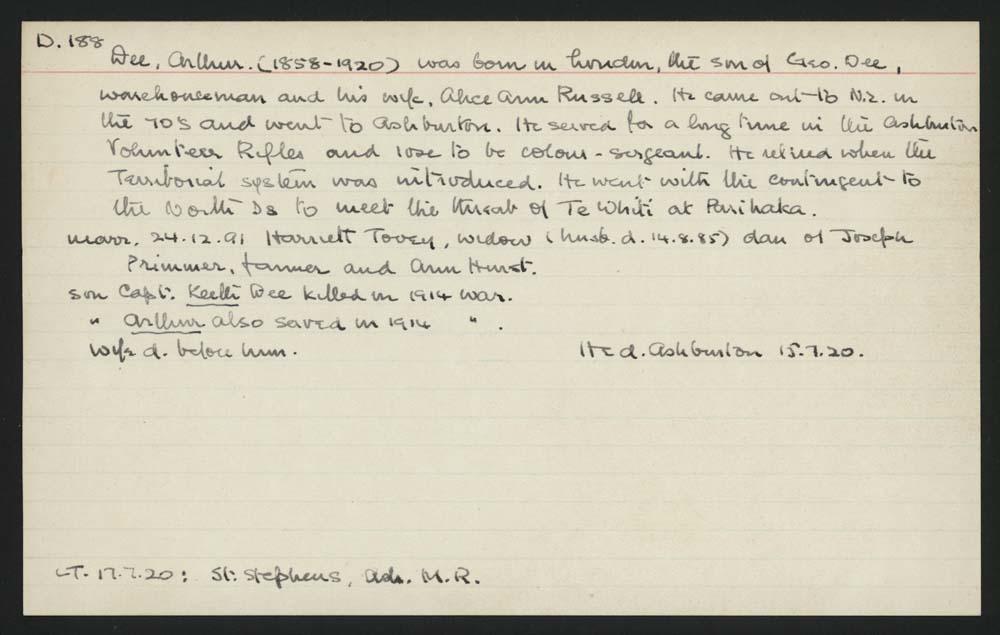 D.188
Dee, Arthur. (1858-1920) was born in London, the son of Geo. Dee,
warehouseman and his wife, Alice Ann Russell. He came out to N.Z. in
the 70's and went to Ashburton. He served for a long time in the Ashburton
Volunteer Rifles and rose to be colour-sergeant. He retired when the
Territorial system was introduced. He went with the contingent to
the North Is to meet the threat of Te Whiti at Parihaka.
marr. 24.12.91 Harriett Tovey, widow (husb. d. 14.8.85) dau of Joseph
Primmer, farmer and Ann Hurst.
son Capt. Keith Dee killed in 1914 war.
" Arthur also served in 1914 " .
wife d. before him. He d. Ashburton 15.7.20.
LT. 17.7.20: St. Stephens, Ash. M.R.